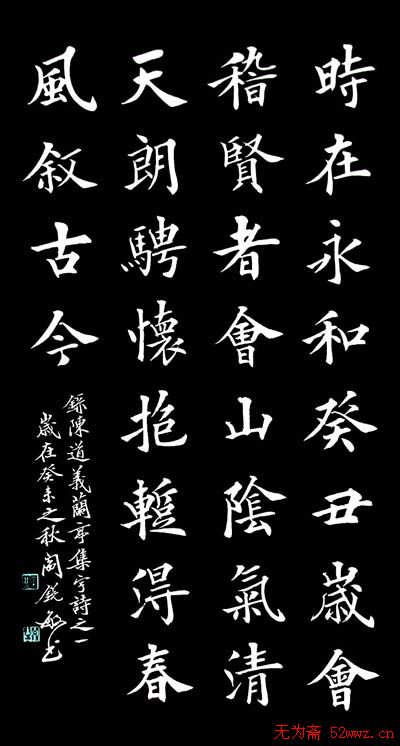 時在永和癸丑歲會
稽賢者會山陰氣清
天朗騁懷抱暫得春
風叙古今
錄陳道義蘭亭集字詩之一
歲在癸未之秋
无为斋 52wwz.cn